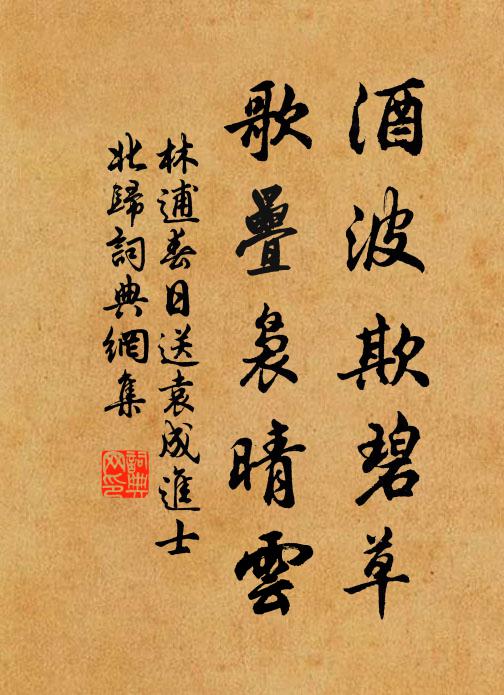 酒波欺碧草
歌疊裊晴雲
林逋春日送袁成進士
北歸詞典網集
詞典網印